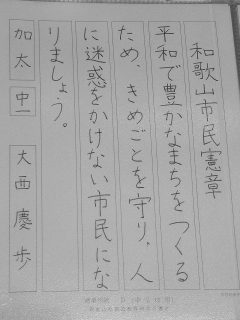 和歌山市民憲章
平和で豊かなまちをつくる
ため、きめごとを守り、人
に迷惑をかけない市民にな
りましょう。
加太 中一 大西慶歩